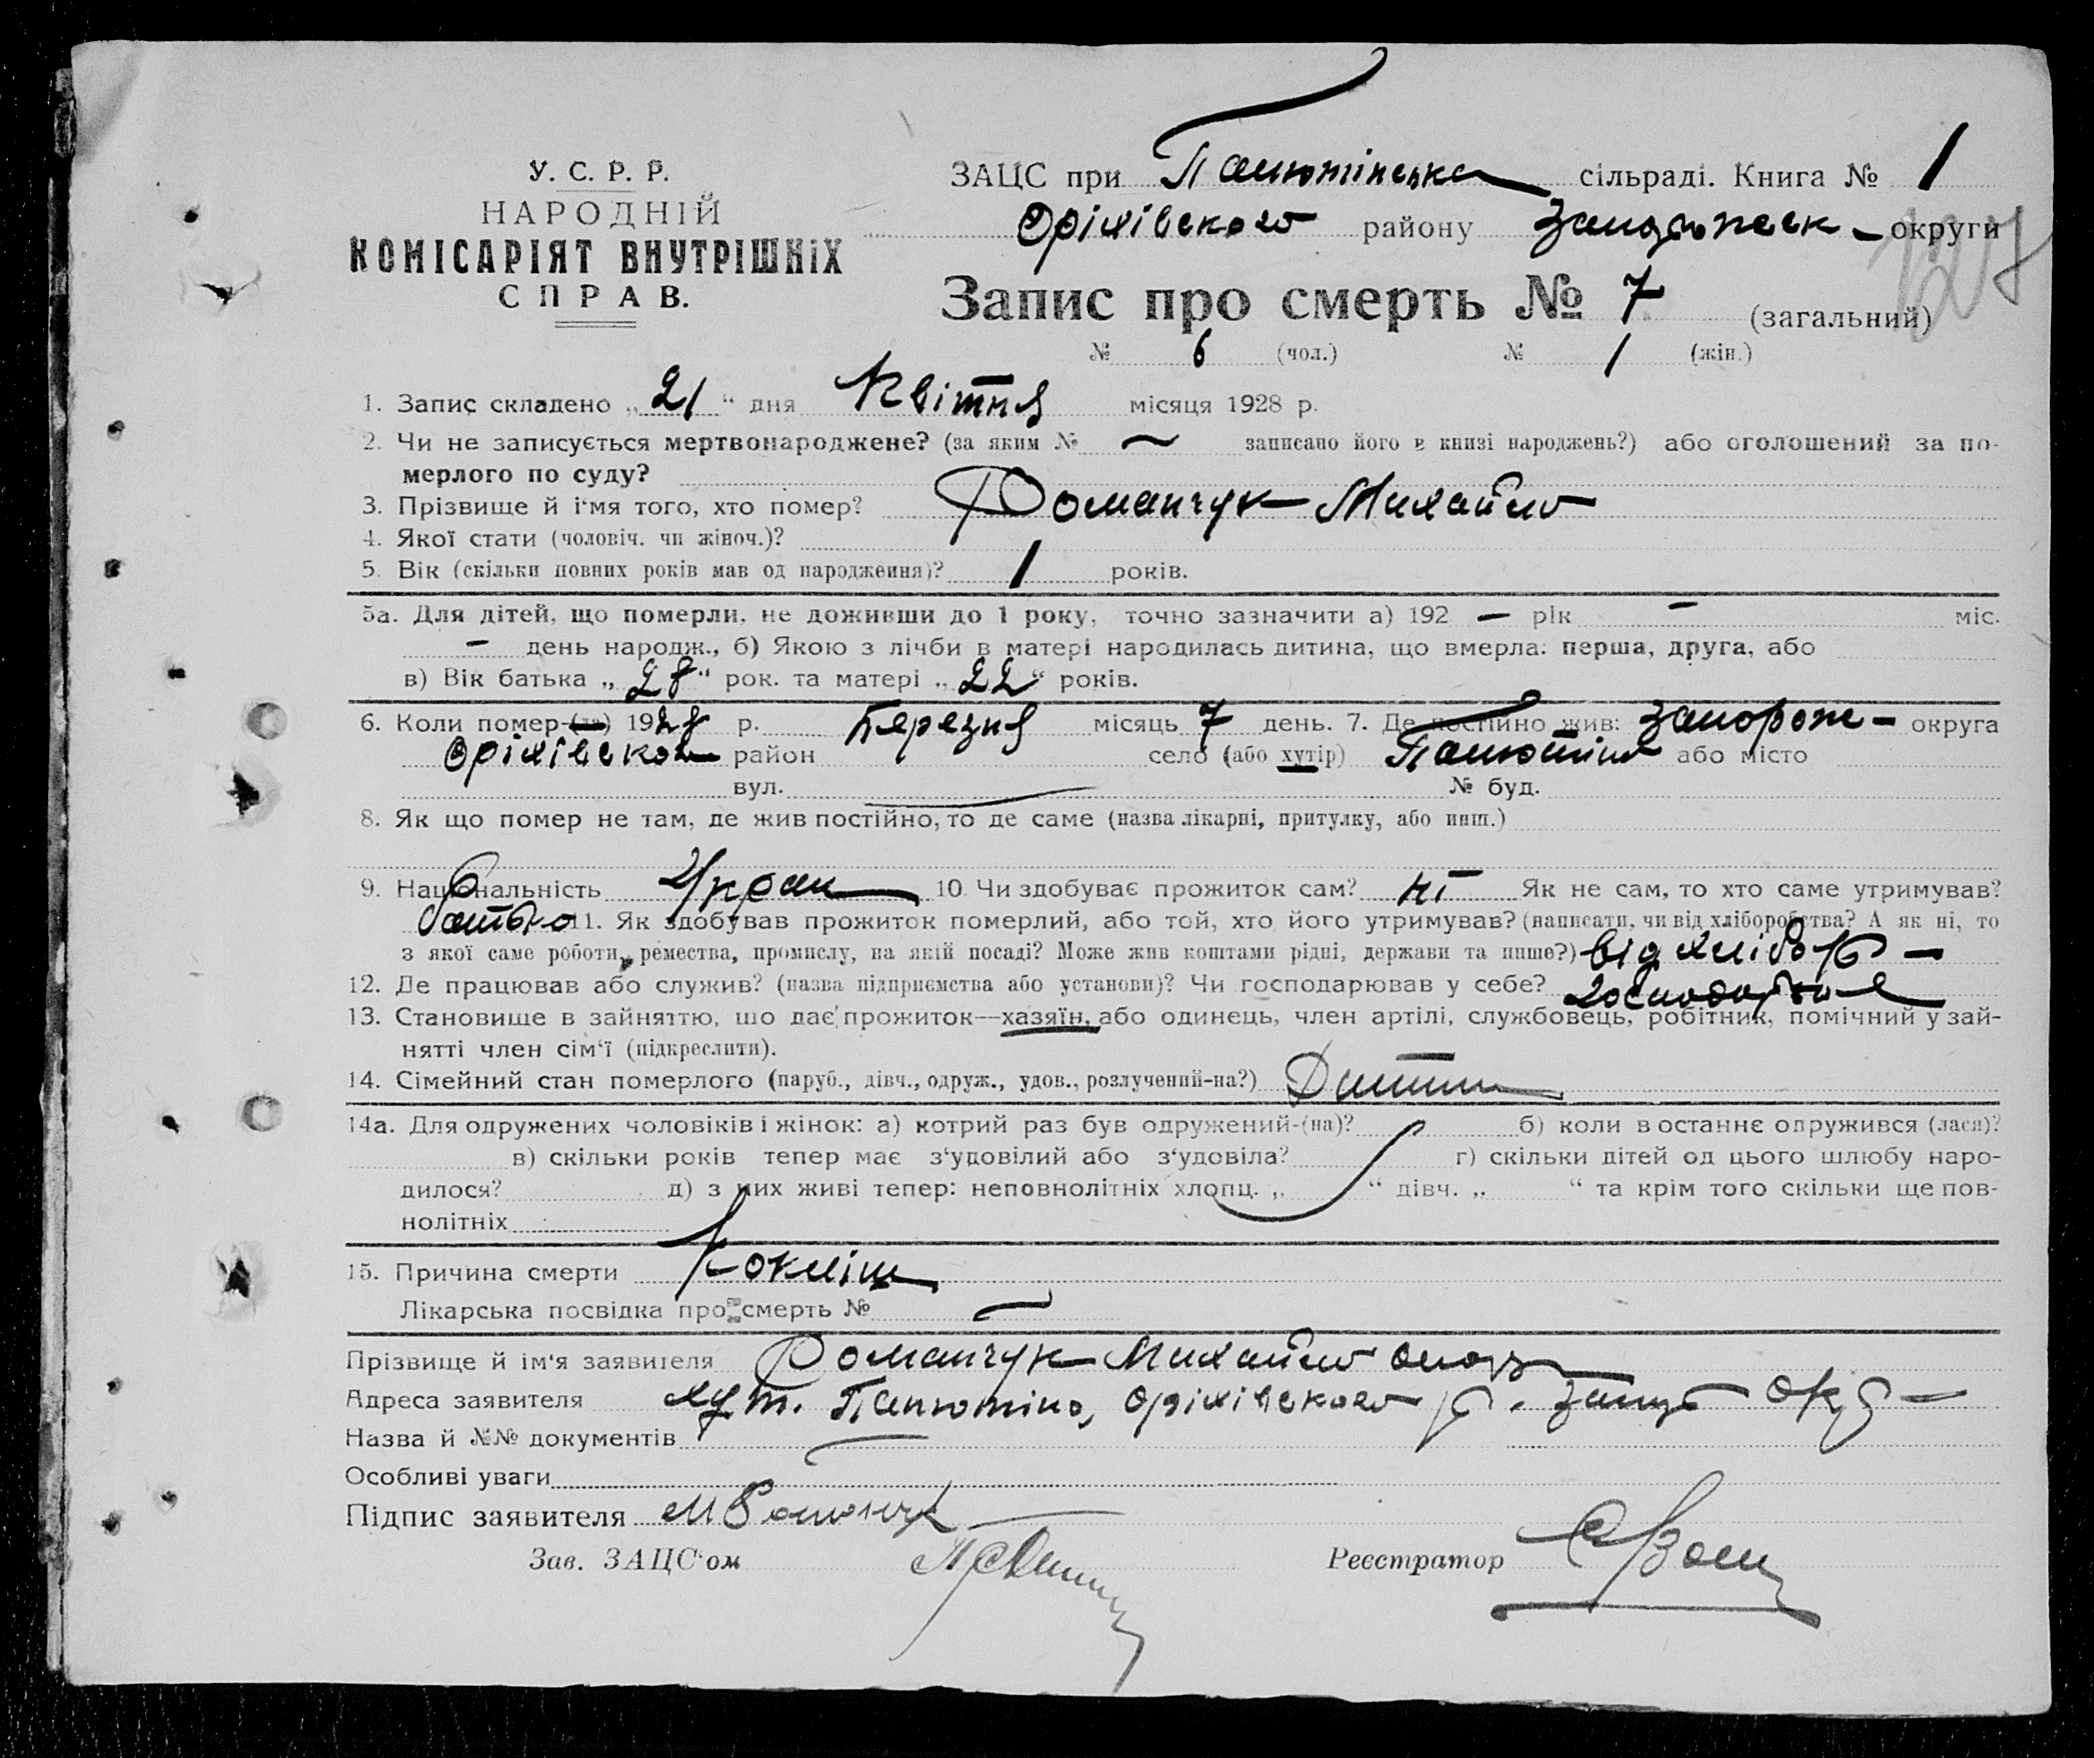 У. С. Р. Р.
НАРОДНІЙ
КОМІСАРІЯТ ВНУТРІШНІХ
СПРАВ.
ЗАЦС при Панютінська сільраді. Книга № 1
Оріхівського району Запоріжськ - округи
Запис про смерть № 7 (загальний)
№ 6 (чол.) № 1 (жін.)
1. Запис складено „21“ дня Квітня місяця 1928 р.
2. Чи не записується мертвонароджене? (за яким № — записано його в книзі народжень?) або оголошений за по-
мерлого по суду?
3. Прізвище й і‘мя того, хто помер? Романчук Михайло
4. Якої стати (чоловіч. чи жіноч.)?
5. Вік (скільки повних років мав од народження)? 1 років.
5а. Для дітей, що померли, не доживши до 1 року, точно зазначити а) 192 — рік — міс.
— день народж., б) Якою з лічби в матері народилась дитина, що вмерла: перша, друга, або
в) Вік батька „28“ рок. та матері „22“ років.
6. Коли помер-(ла) 1928 р. Березня місяць 7 день. 7. Де постійно жив: Запорож - округа
Оріхівском район село (або хутір) Панютіно або місто
вул. № буд.
8. Як що помер не там, де жив постійно, то де саме (назва лікарні, притулку, або инш.)
9. Національність Украин 10 Чи здобуває прожиток сам? ні Як не сам, то хто саме утримував?
батько 11. Як здобував прожиток померлий, або той, хто його утримував? (написати, чи від хліборобства? А як ні, то
з якої саме роботи, ремества, промислу, на якій посаді? Може жив коштами рідні, держави та инше?) від хлібор —
12. Де працював або служив? (назва підприємства або установи)? Чи господарював у себе?
13. Становище в зайняттю, що дає прожиток—хазяїн, або одинець, член артілі, службовець, робітник, помічний у зай-
нятті член сім‘ї (підкреслити).
14. Сімейний стан померлого (паруб., дівч., одруж., удов., розлучений-на?) Дитина
14а. Для одружених чоловіків і жінок: а) котрий раз був одружений-(на)? б) коли в останнє одружився (лася)?
в) скільки років тепер має з‘удовілий або з‘удовіла? г) скільки дітей од цього шлюбу наро-
дилося? д) з них живі тепер: неповнолітніх хлопц. „ “ дівч. „ “ та крім того скільки ще пов-
нолітніх
15. Причина смерти Кокліш
Лікарська посвідка про смерть № —
Прізвище й ім‘я заявителя Романчук Михайло
Адреса заявителя хут. Панютіно, Оріхівського р. Запор окр —
Назва й №№ документів
Особливі уваги
Підпис заявителя М Романчук
Зав. ЗАЦС‘ом
Реєстратор